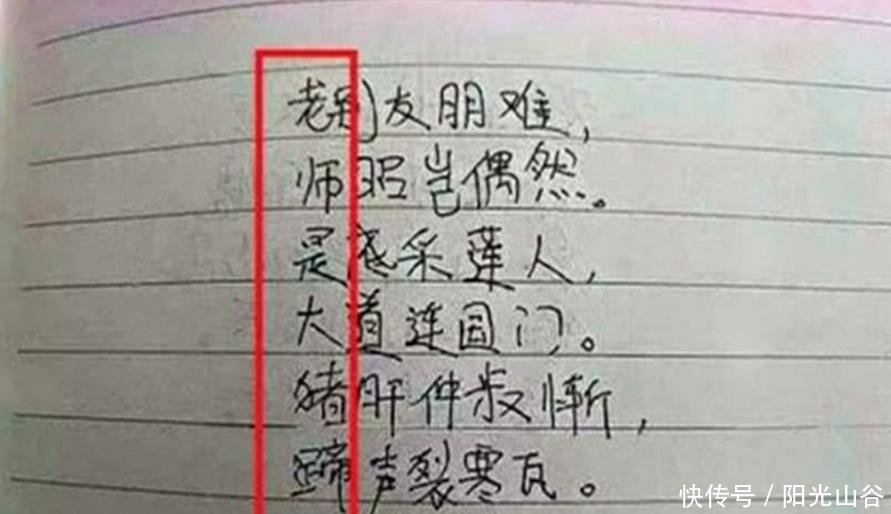 老别友朋难，
师躬岂偶然。
是底采莲人，
大道连国门。
猪肝仲叔惭，
蹄声裂寒瓦。
快传号 / 阳光山谷